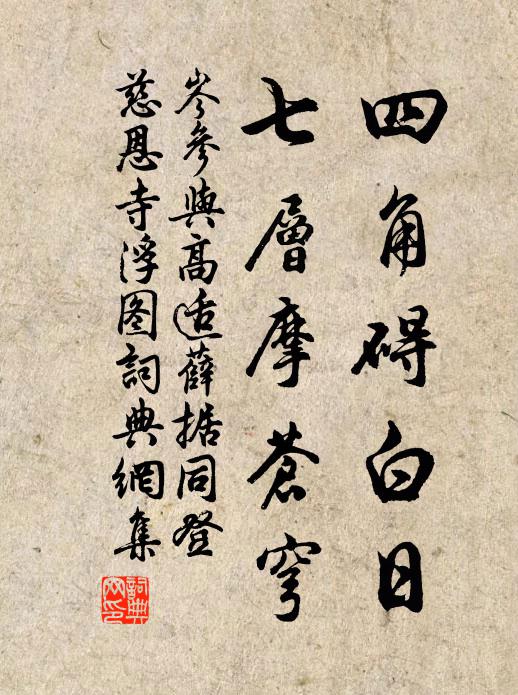 四角碍白日
七層摩蒼穹
岑參與高适薛据同登
慈恩寺浮图詞典網集
詞典网印